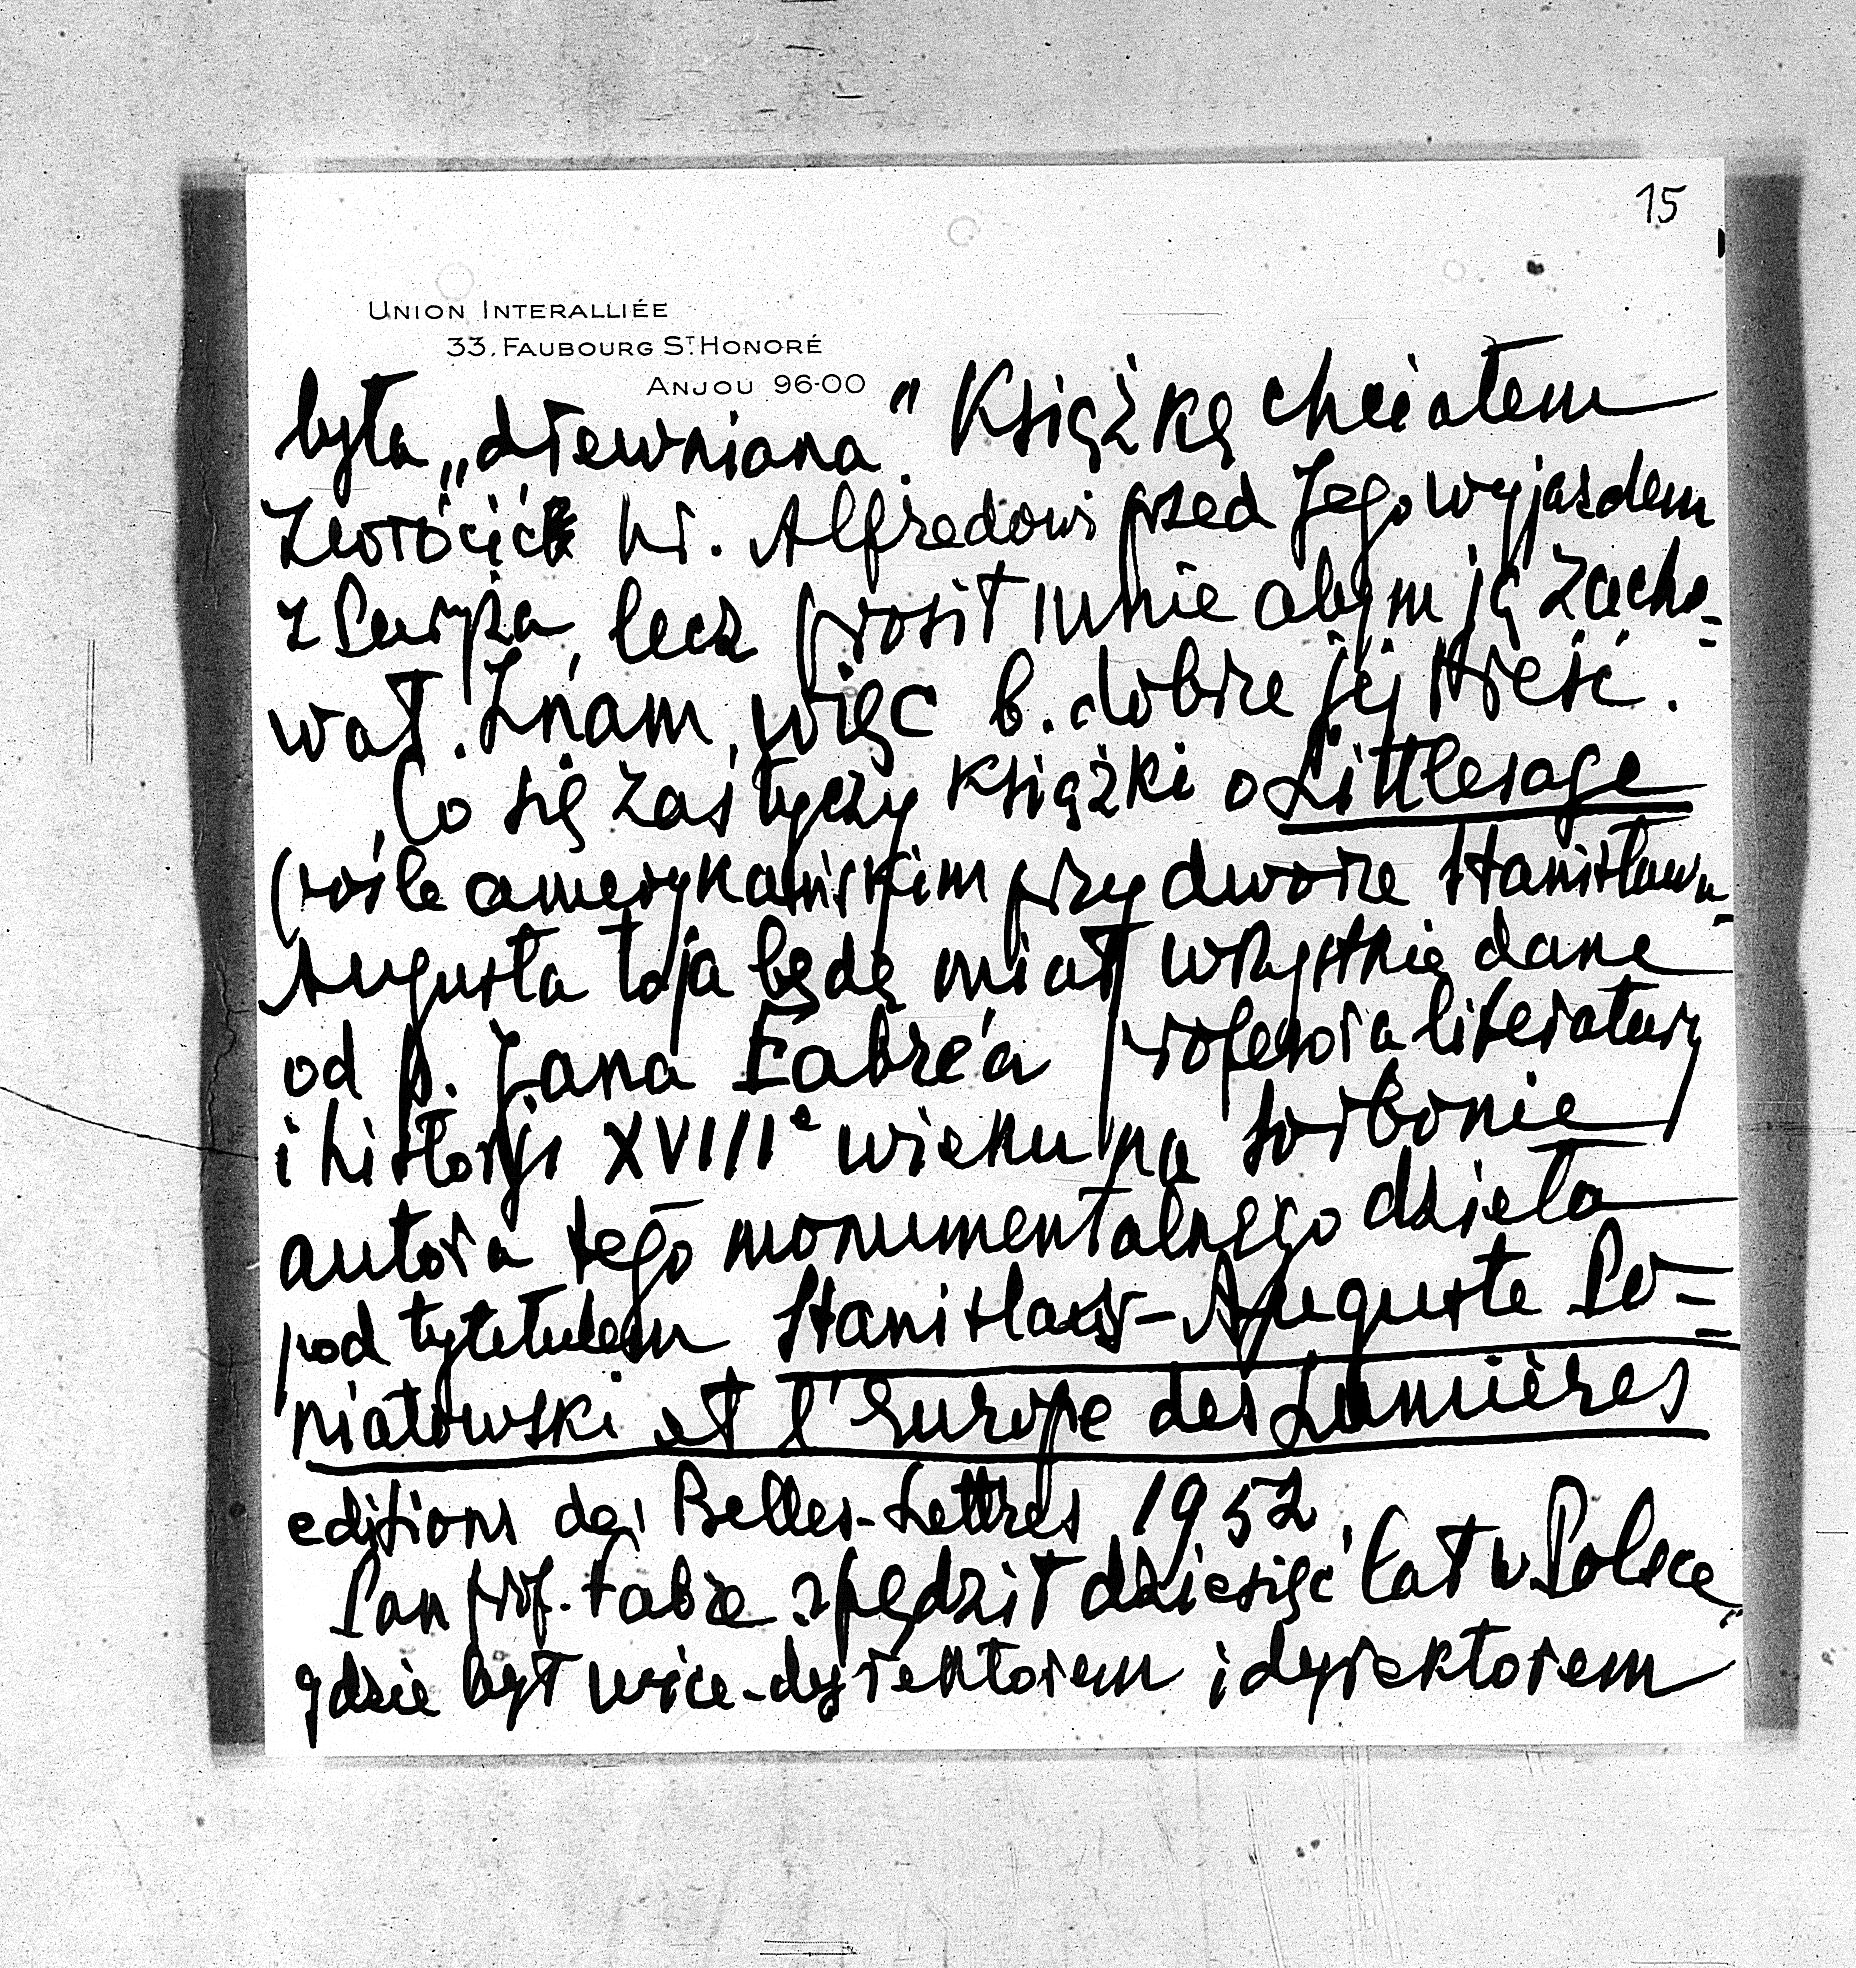 15
UNION INTERALLIÉE
33, FAUBOURG ST. HONORÉ
ANJOU 96-00
była „drewniana". Książkę chciałem
zwrócić hr. Alfredowi przed Jego wyjazdem
z Paryża, lecz prosił mnie abym ją zacho=
wał. Znam więc b. dobrze jej treść.
Co się zaś tyczy książki o Littlesage
(pośle amerykańskim przy dworze Stanisława
Augusta to ja będę miał wszystkie dane
od p. Jana Fabre'a profesora literatury
i historji XVIIIe wieku na Sorbonie
autora tego monumentalnego dzieła
pod tytułem Stanislaus-Auguste Po=
niatowski et l'Europe des Lumières
editions des Belles-Lettres 1952.
Pan prof. Fabre spędził dziesięć lat w Polsce
gdzie był wice-dyrektorem i dyrektorem